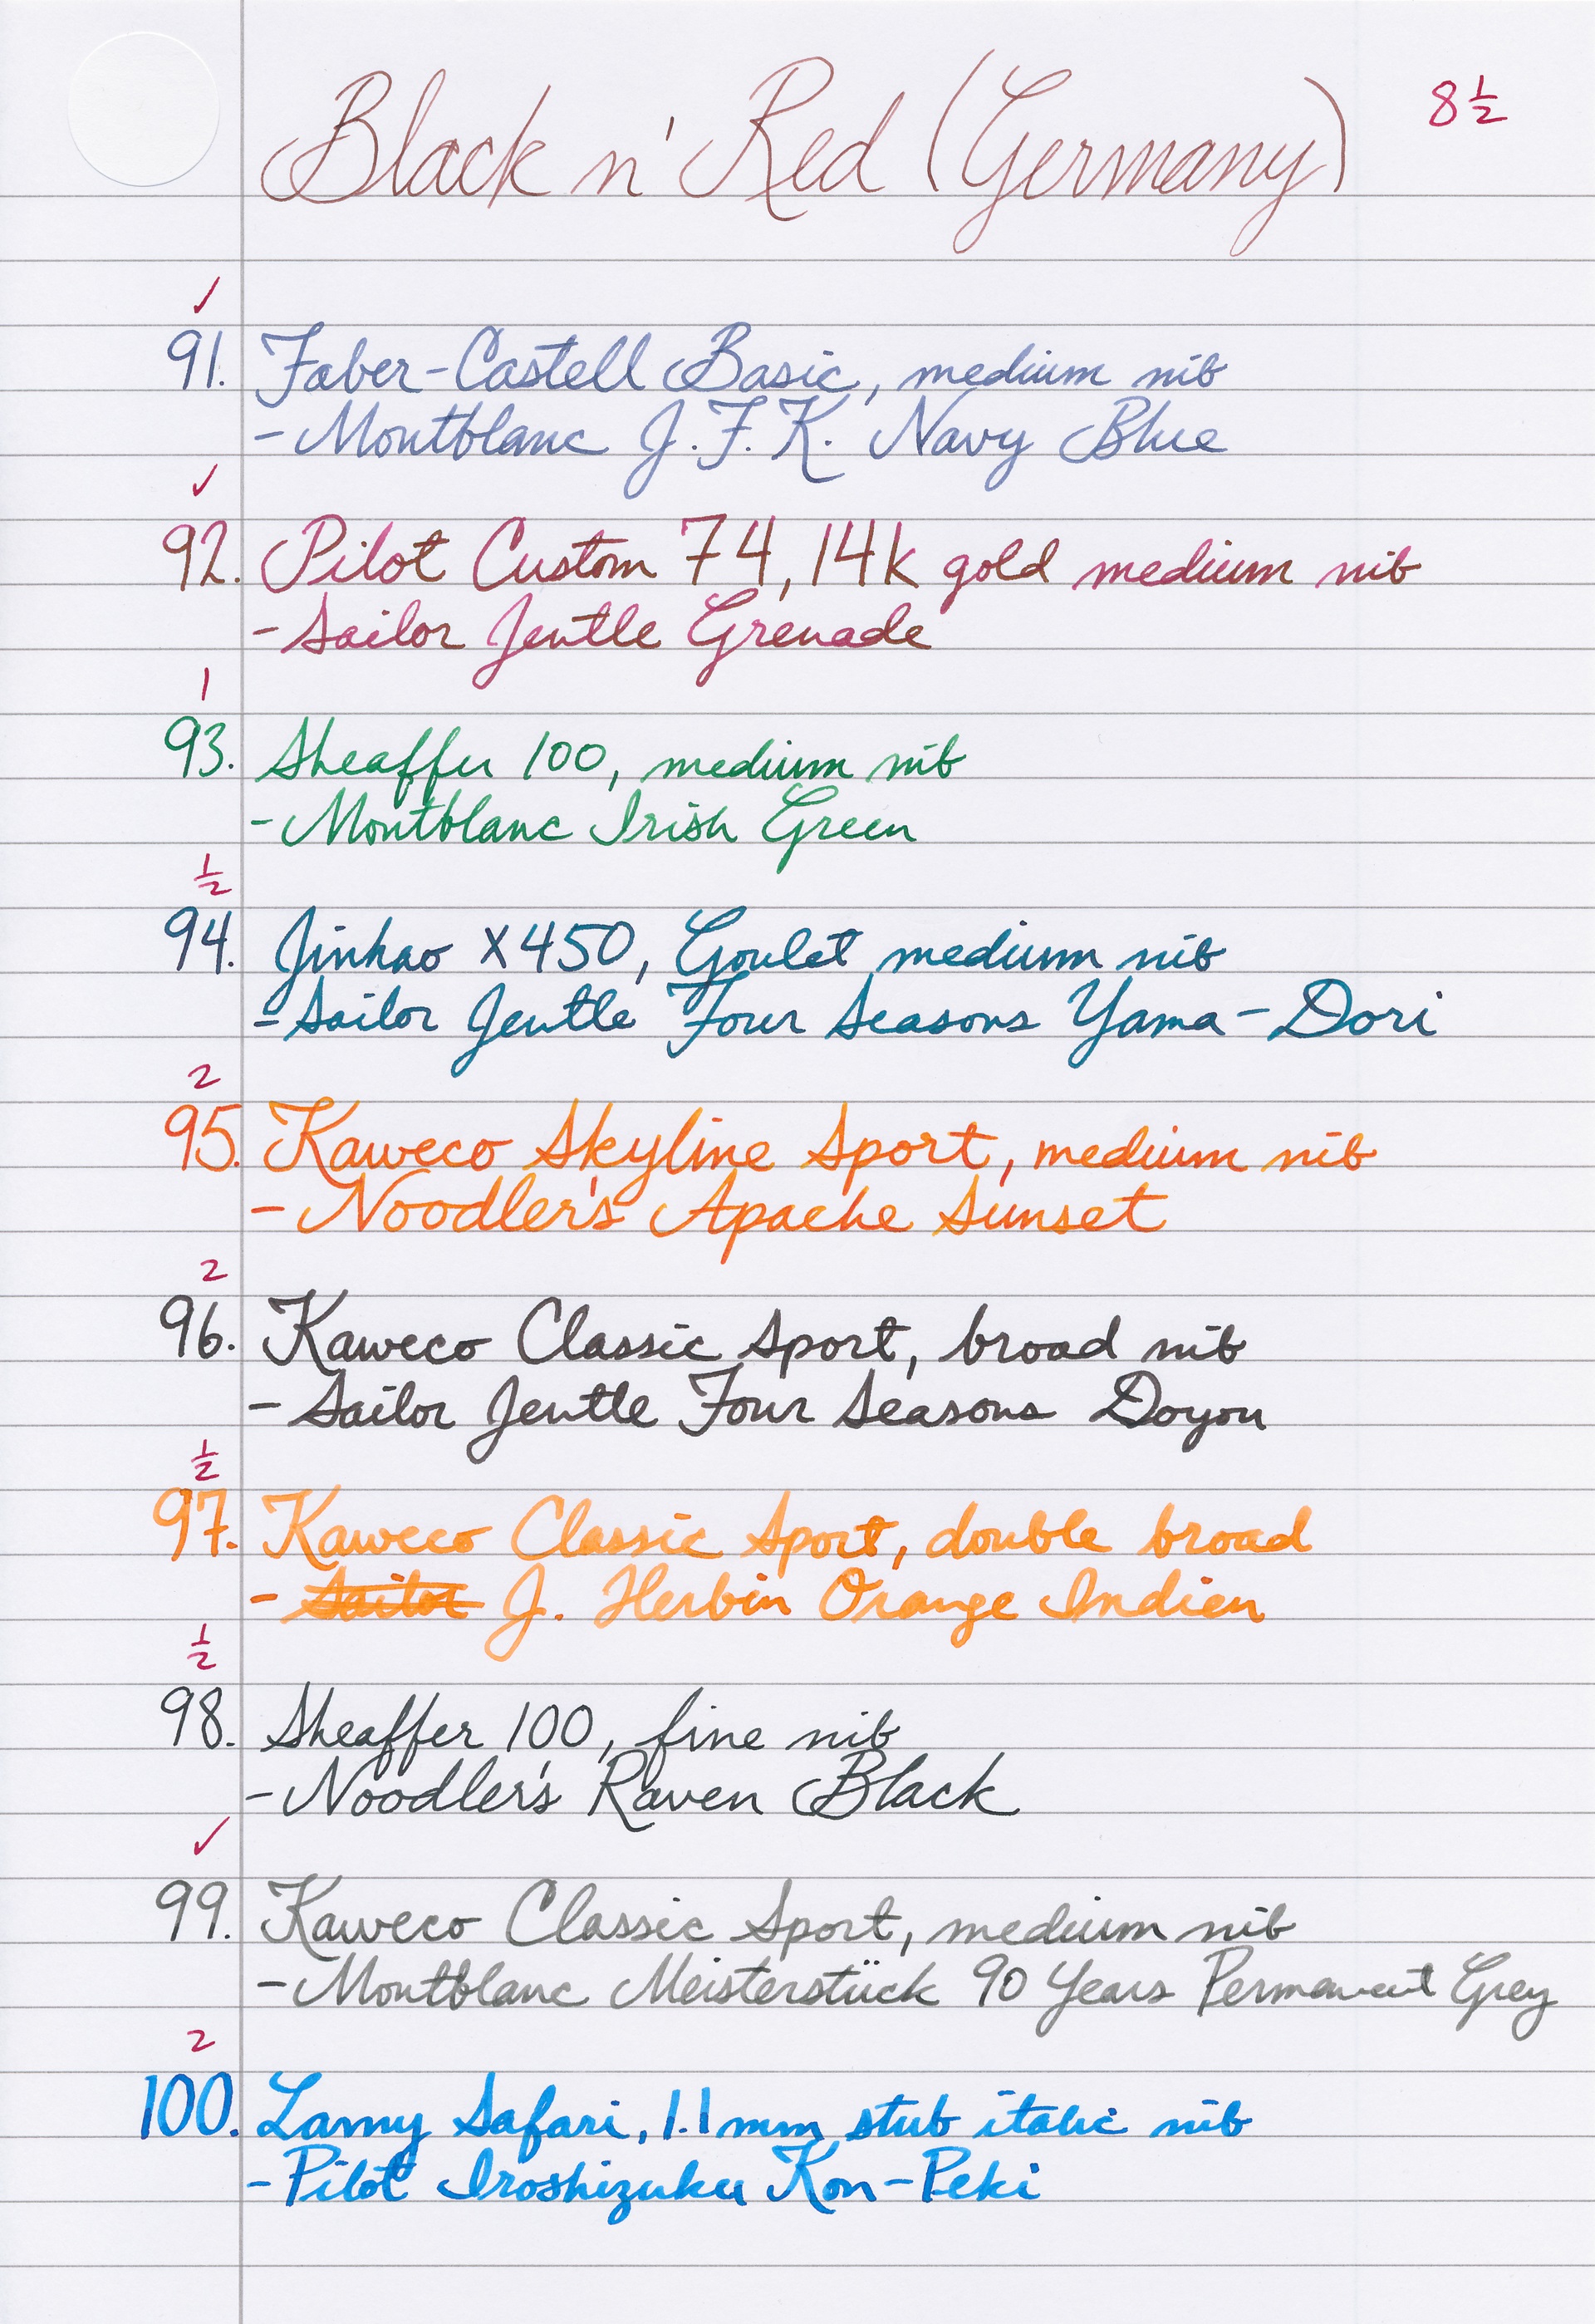 Black n' Red (Germany) 8 1/2
✓
91. Faber-Castell Basic, medium nib
- Montblanc J.F.K. Navy Blue
✓
92. Pilot Custom 74, 14k gold medium nib
- Sailor Jentle Grenade
1
93. Sheaffer 100, medium nib
- Montblanc Irish Green
1/2
94. Jinhao X450, Goulet medium nib
- Sailor Jentle Four Seasons Yama-Dori
2
95. Kaweco Skyline Sport, medium nib
- Noodler's Apache Sunset
2
96. Kaweco Classic Sport, broad nib
- Sailor Jentle Four Seasons Doyou
1/2
97. Kaweco Classic Sport, double broad
- Sailor J. Herbin Orange Indien
1/2
98. Sheaffer 100, fine nib
- Noodler's Raven Black
✓
99. Kaweco Classic Sport, medium nib
- Montblanc Meisterstück 90 Years Permanent Grey
2
100. Lamy Safari, 1.1mm stub italic nib
- Pilot Iroshizuku Kon-Peki